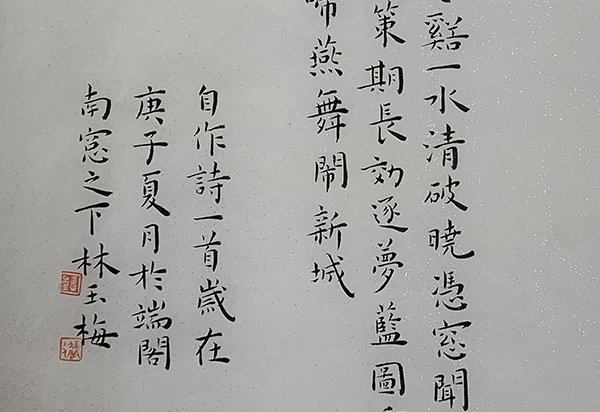 谿一水清破曉憑窓聞
策期長効逐夢藍圖
啼燕舞鬧新城
自作詩一首歲在
庚子夏月於端閣
南窓之下林玉梅